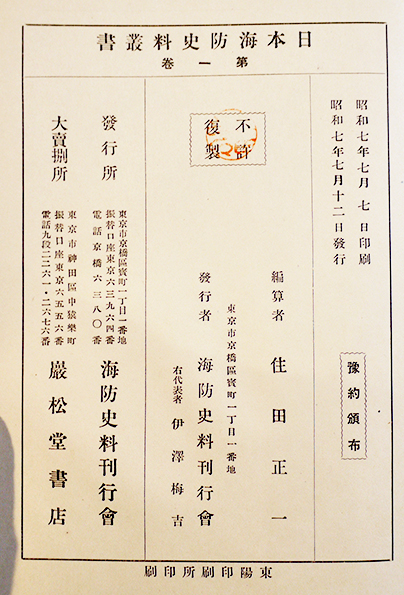 日本海防史料叢書
第一卷
昭和七年七月七日印刷
昭和七年七月十二日發行
豫約頒布
不許
復製
編算者 住田正一
東京市京橋區寳町一丁目一番地
發行者 海防史料刊行會
右代表者 伊澤梅吉
發行所
東京市京橋區寳町一丁目一番地
振替口座東京六三九六四番
電話京橋六三八〇番
海防史料刊行會
大賣捌所
東京市神田區中猿樂町
振替口座東京六五五六番
電話九段二三六一・二六七六番
巖松堂書店
東陽印刷所印刷